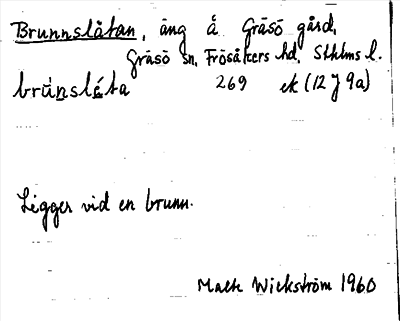 Brunnslåtan, äng å Gräsö gård,
Gräsö sn, Frösåkers hd, Sthlms l.
brúnsléta 269 ek (12 J 9a)
Ligger vid en brunn.
Wickström 1960